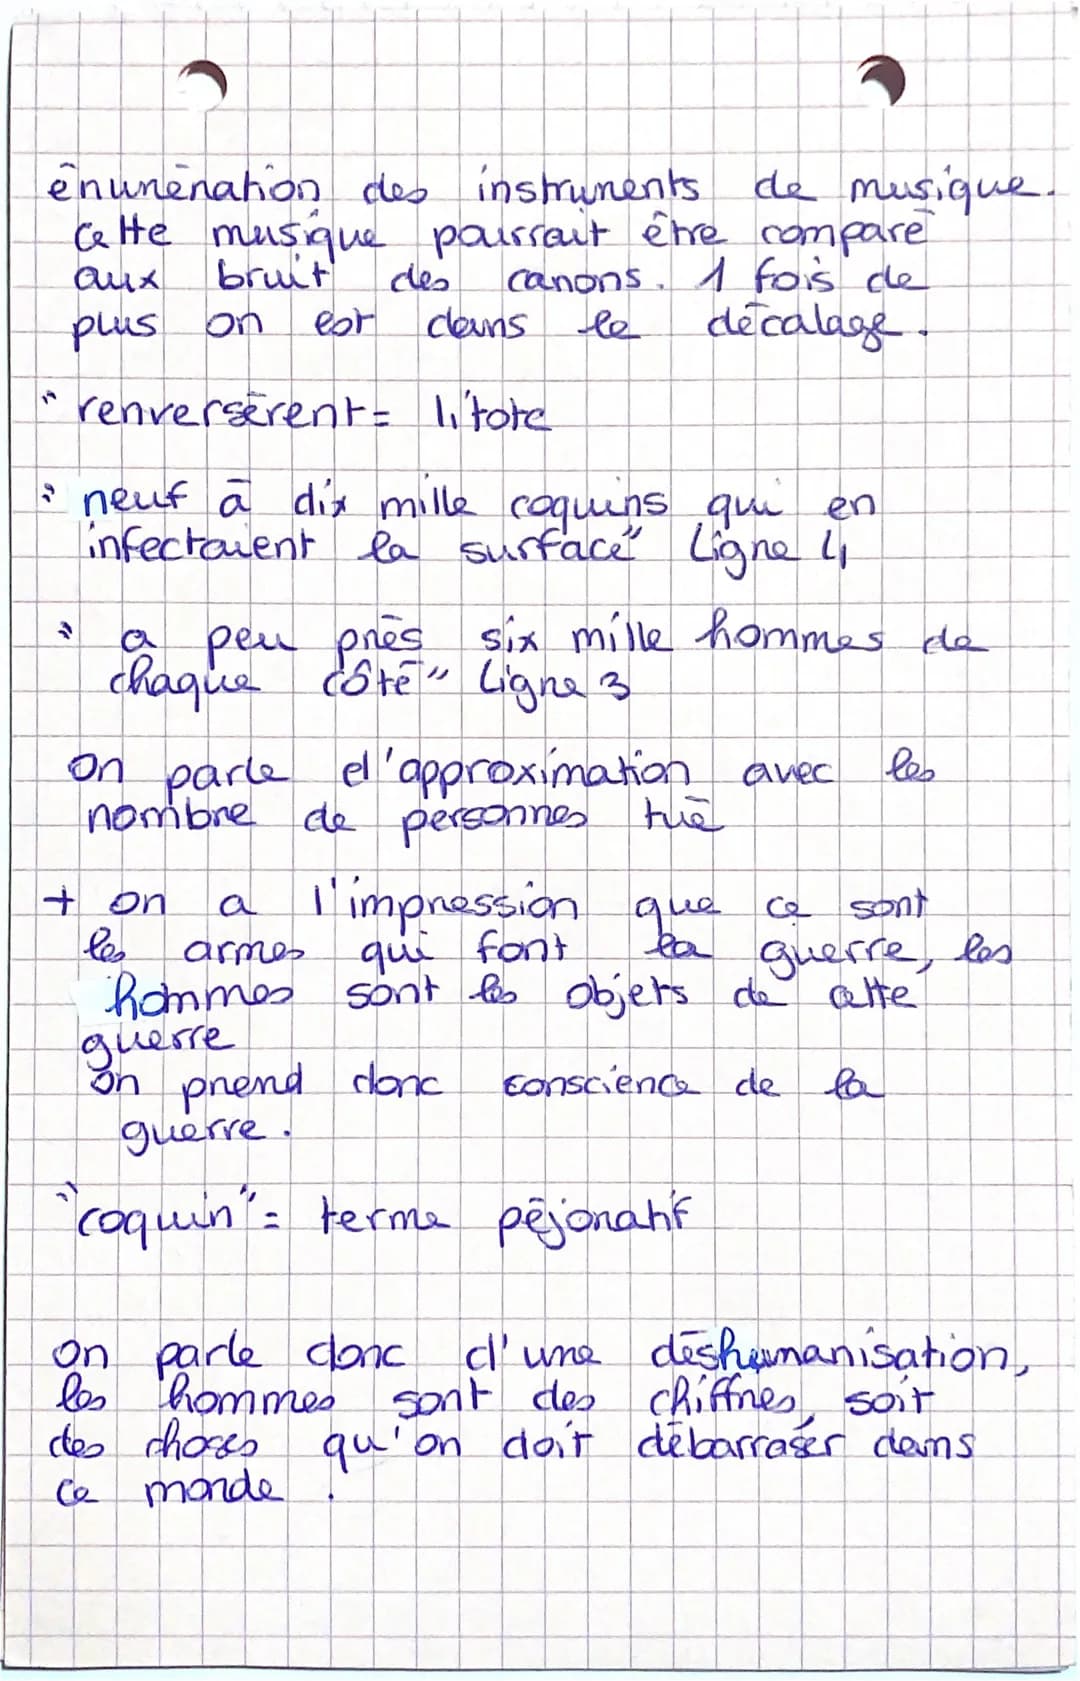 énumération des instruments de musique.
cette musique pourrait être comparé
aux bruit des canons. 1 fois de
plus on est dans le décalage.
"renversèrent = litote
"neuf à dix mille coquins qui en
infectaient la surface" Ligne 4
"a peu près six mille hommes de
chaque côté" Ligne 3
On parle d'approximation avec les
nombre de personnes tué
+ on a l'impression que ce sont
les armes qui font la guerre, les
hommes sont les objets de cette
guerre
On prend donc conscience de la
guerre.
"coquin" = terme péjoratif
On parle donc d'une déshumanisation,
les hommes sont des chiffres, soit
des choses qu'on doit débarraser dans
ce monde.